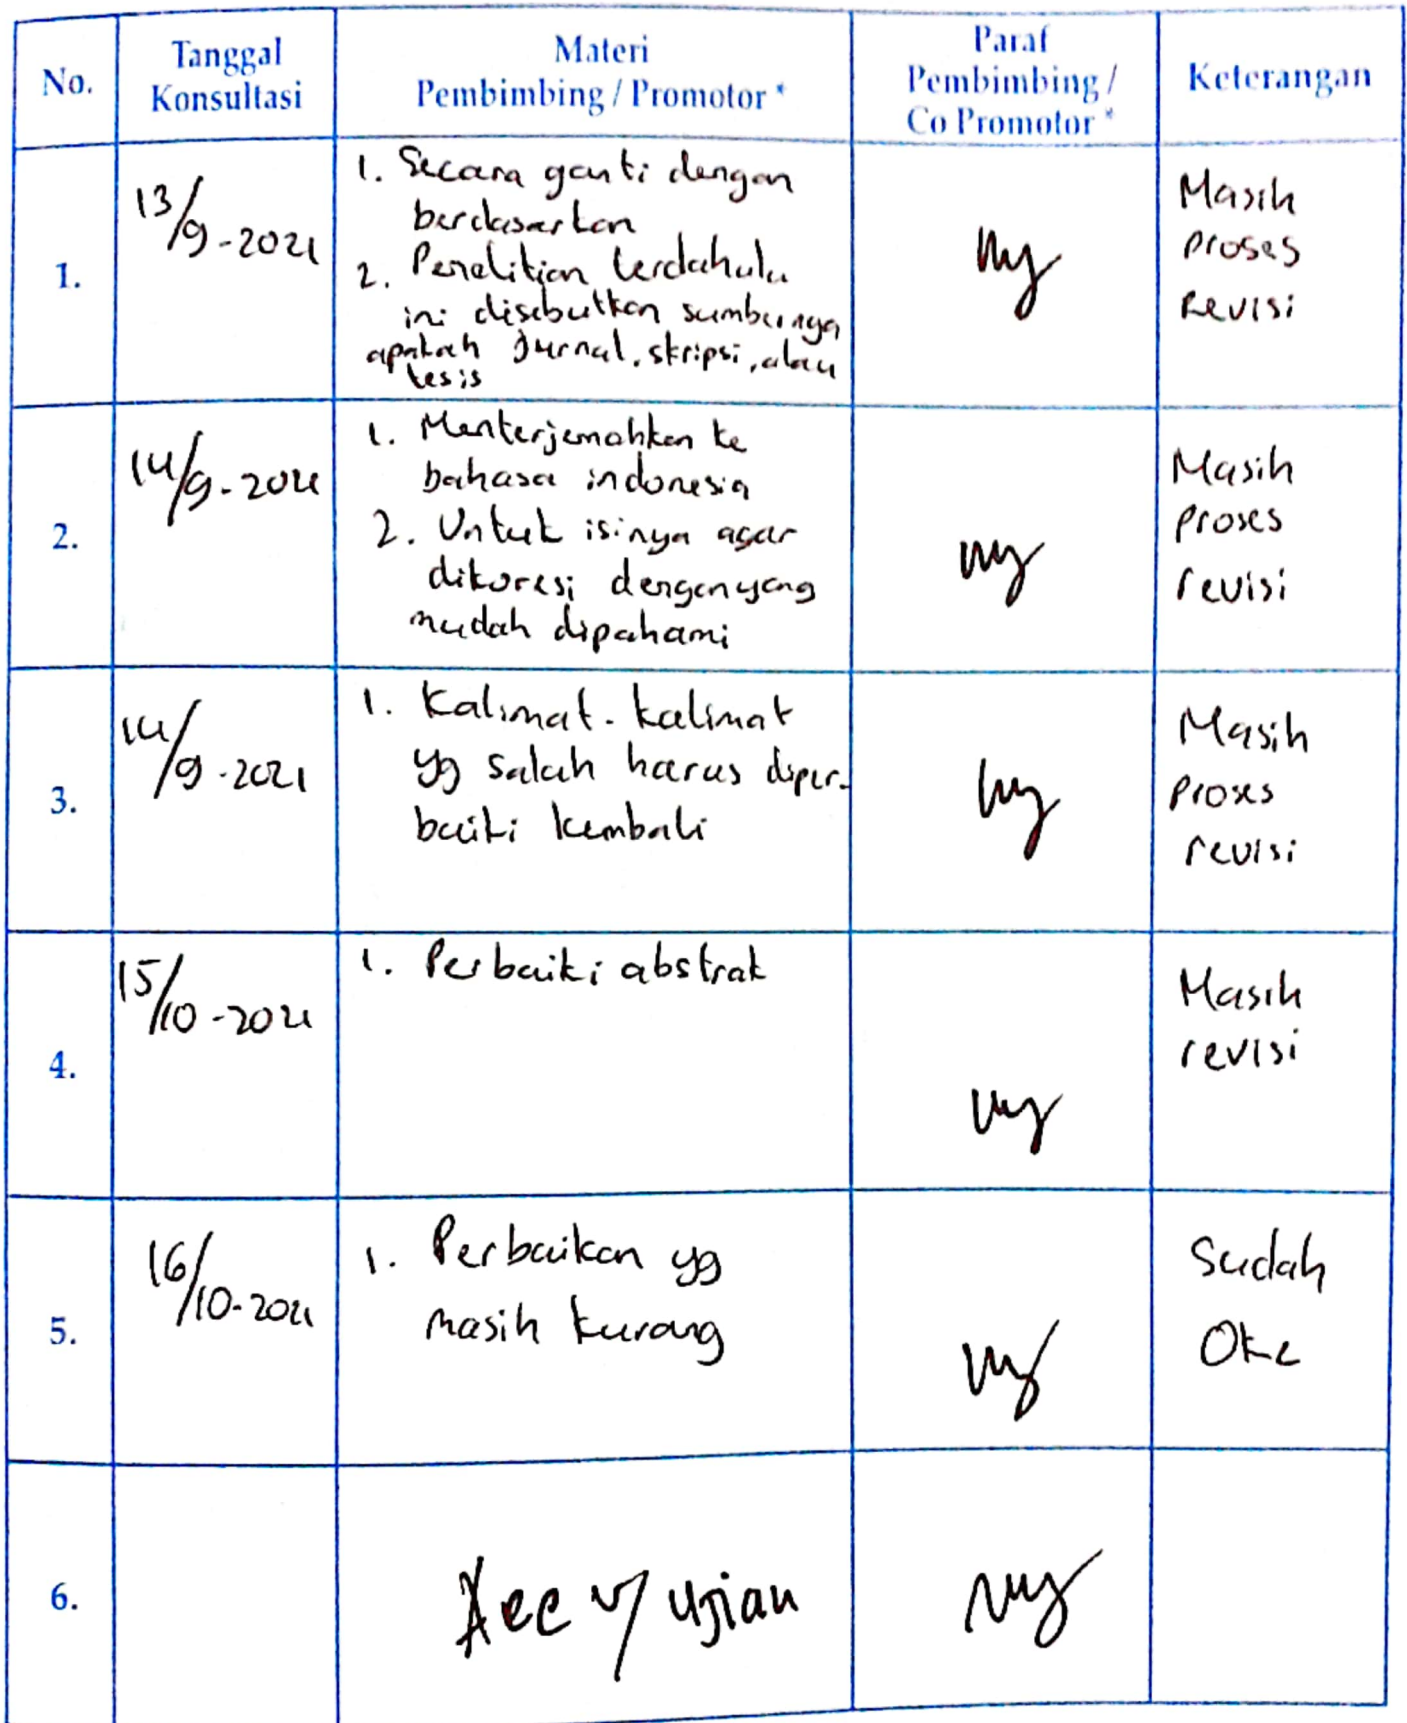 No.
Tanggal
Konsultasi
Materi
Pembimbing / Promotor *
Paraf
Pembimbing /
Co Promotor *
Keterangan
1.
13/9-2021
1. Secara ganti dengan
berdasarkan
2. Penelitian terdahulu
ini disebutkan sumbernya
apakah jurnal, skripsi, atau
tesis
Masih
proses
Revisi
2.
14/9-2021
1. Menterjemahkan ke
bahasa indonesia
2. Untuk isinya agar
dikoresi dengan yang
mudah dipahami
Masih
proses
revisi
3.
14/9-2021
1. Kalimat-kalimat
yg salah harus diper-
baiki kembali
Masih
proses
revisi
4.
15/10-2021
1. Perbaiki abstrak
Masih
revisi
5.
16/10-2021
1. Perbaikan yg
masih kurang
Sudah
Oke
6.
Acc u/ ujian